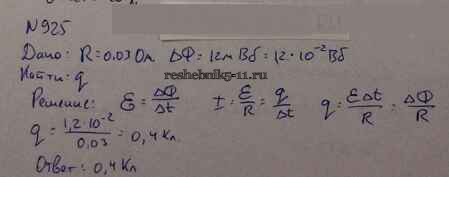 N925
Дано: R = 0.03 Ом. ΔФ = 12 мВб = 12·10⁻² Вб
Найти: q
reshebnik5-11.ru
Решение: ℰ = ΔФ/Δt I = ℰ/R = q/Δt q = ℰΔt/R = ΔФ/R
q = 1,2·10⁻²/0,03 = 0,4 Кл.
Ответ: 0,4 Кл